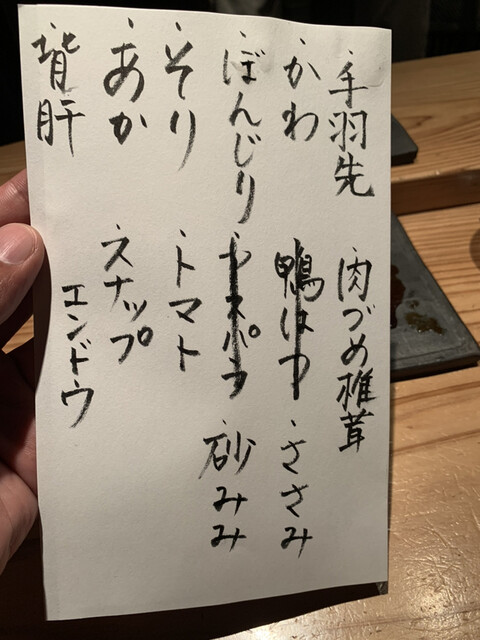 ・手羽先
肉づめ椎茸
・かわ
鴨はつ
・ささみ
・ぼんじり
・ヤネパラ
・砂みみ
・そり
・トマト
・あか
・スナップ
エンドウ
・背肝